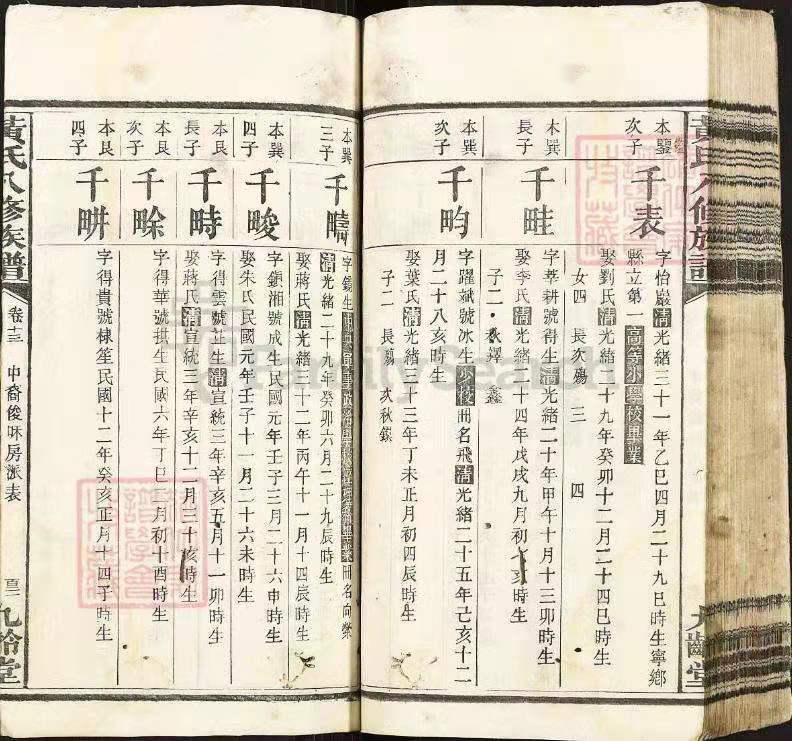 黃氏八修族譜
九齡堂
本鑒
次子
千表
字怡巖清光緒三十一年乙巳四月二十九巳時生寧鄉
縣立第一高等小學校畢業
娶劉氏清光緒二十九年癸卯十二月二十四巳時生
女四 長次殤 三 四
本巽
長子
千畦
字莘耕號得生清光緒二十年甲午十月十三卯時生
娶李氏清光緒二十四年戊戌九月初十亥時生
子二 秋鐸 鑫
本巽
次子
千畇
字躍斌號冰生少校冊名飛清光緒二十五年己亥十二
月二十八亥時生
娶葉氏清光緒三十三年丁未正月初四辰時生
子二 長殤 次秋鎵
本巽
三子
千疇
字鑄生冊名向榮
清光緒二十九年癸卯六月二十九辰時生
娶蔣氏清光緒三十二年丙午十一月十四辰時生
本巽
四子
千畯
字鎮湘號成生民國元年壬子三月二十六申時生
娶朱氏民國元年壬子十一月二十六未時生
本艮
長子
千時
字得雲號芷生清宣統三年辛亥五月十一卯時生
娶蔣氏清宣統三年辛亥十二月三十亥時生
本艮
次子
千畭
字得華號拱生民國六年丁巳二月初十酉時生
本艮
四子
千畊
字得貴號棣笙民國十二年癸亥正月十四子時生
黃氏八修族譜
卷十三 中裔俊咊房派表
九齡堂
FamilySearch